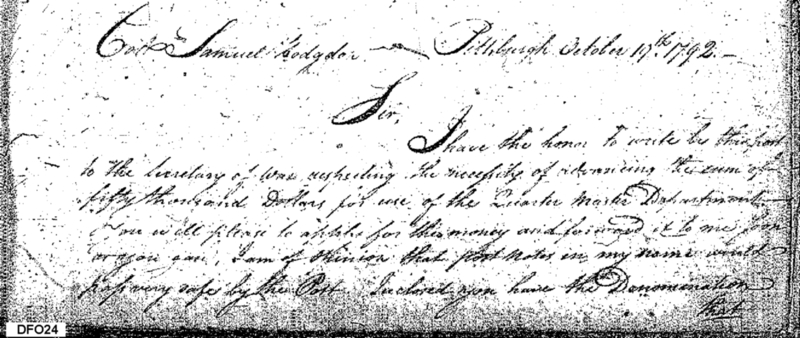 Colo Samuel Hodgdon — Pittsburgh October 19th. 1792. —
Sir,
I have the honor to write by this post
to the Secretary of War respecting the necessity of advancing the sum of
fifty thousand Dollars for use of the Quarter Master Department —
You will please to apply for this money and forward it to me
as you can, I am of Opinion that post Notes in my name would
pass very safe by the Post. Inclosed you have the Denomination
that
DFO24